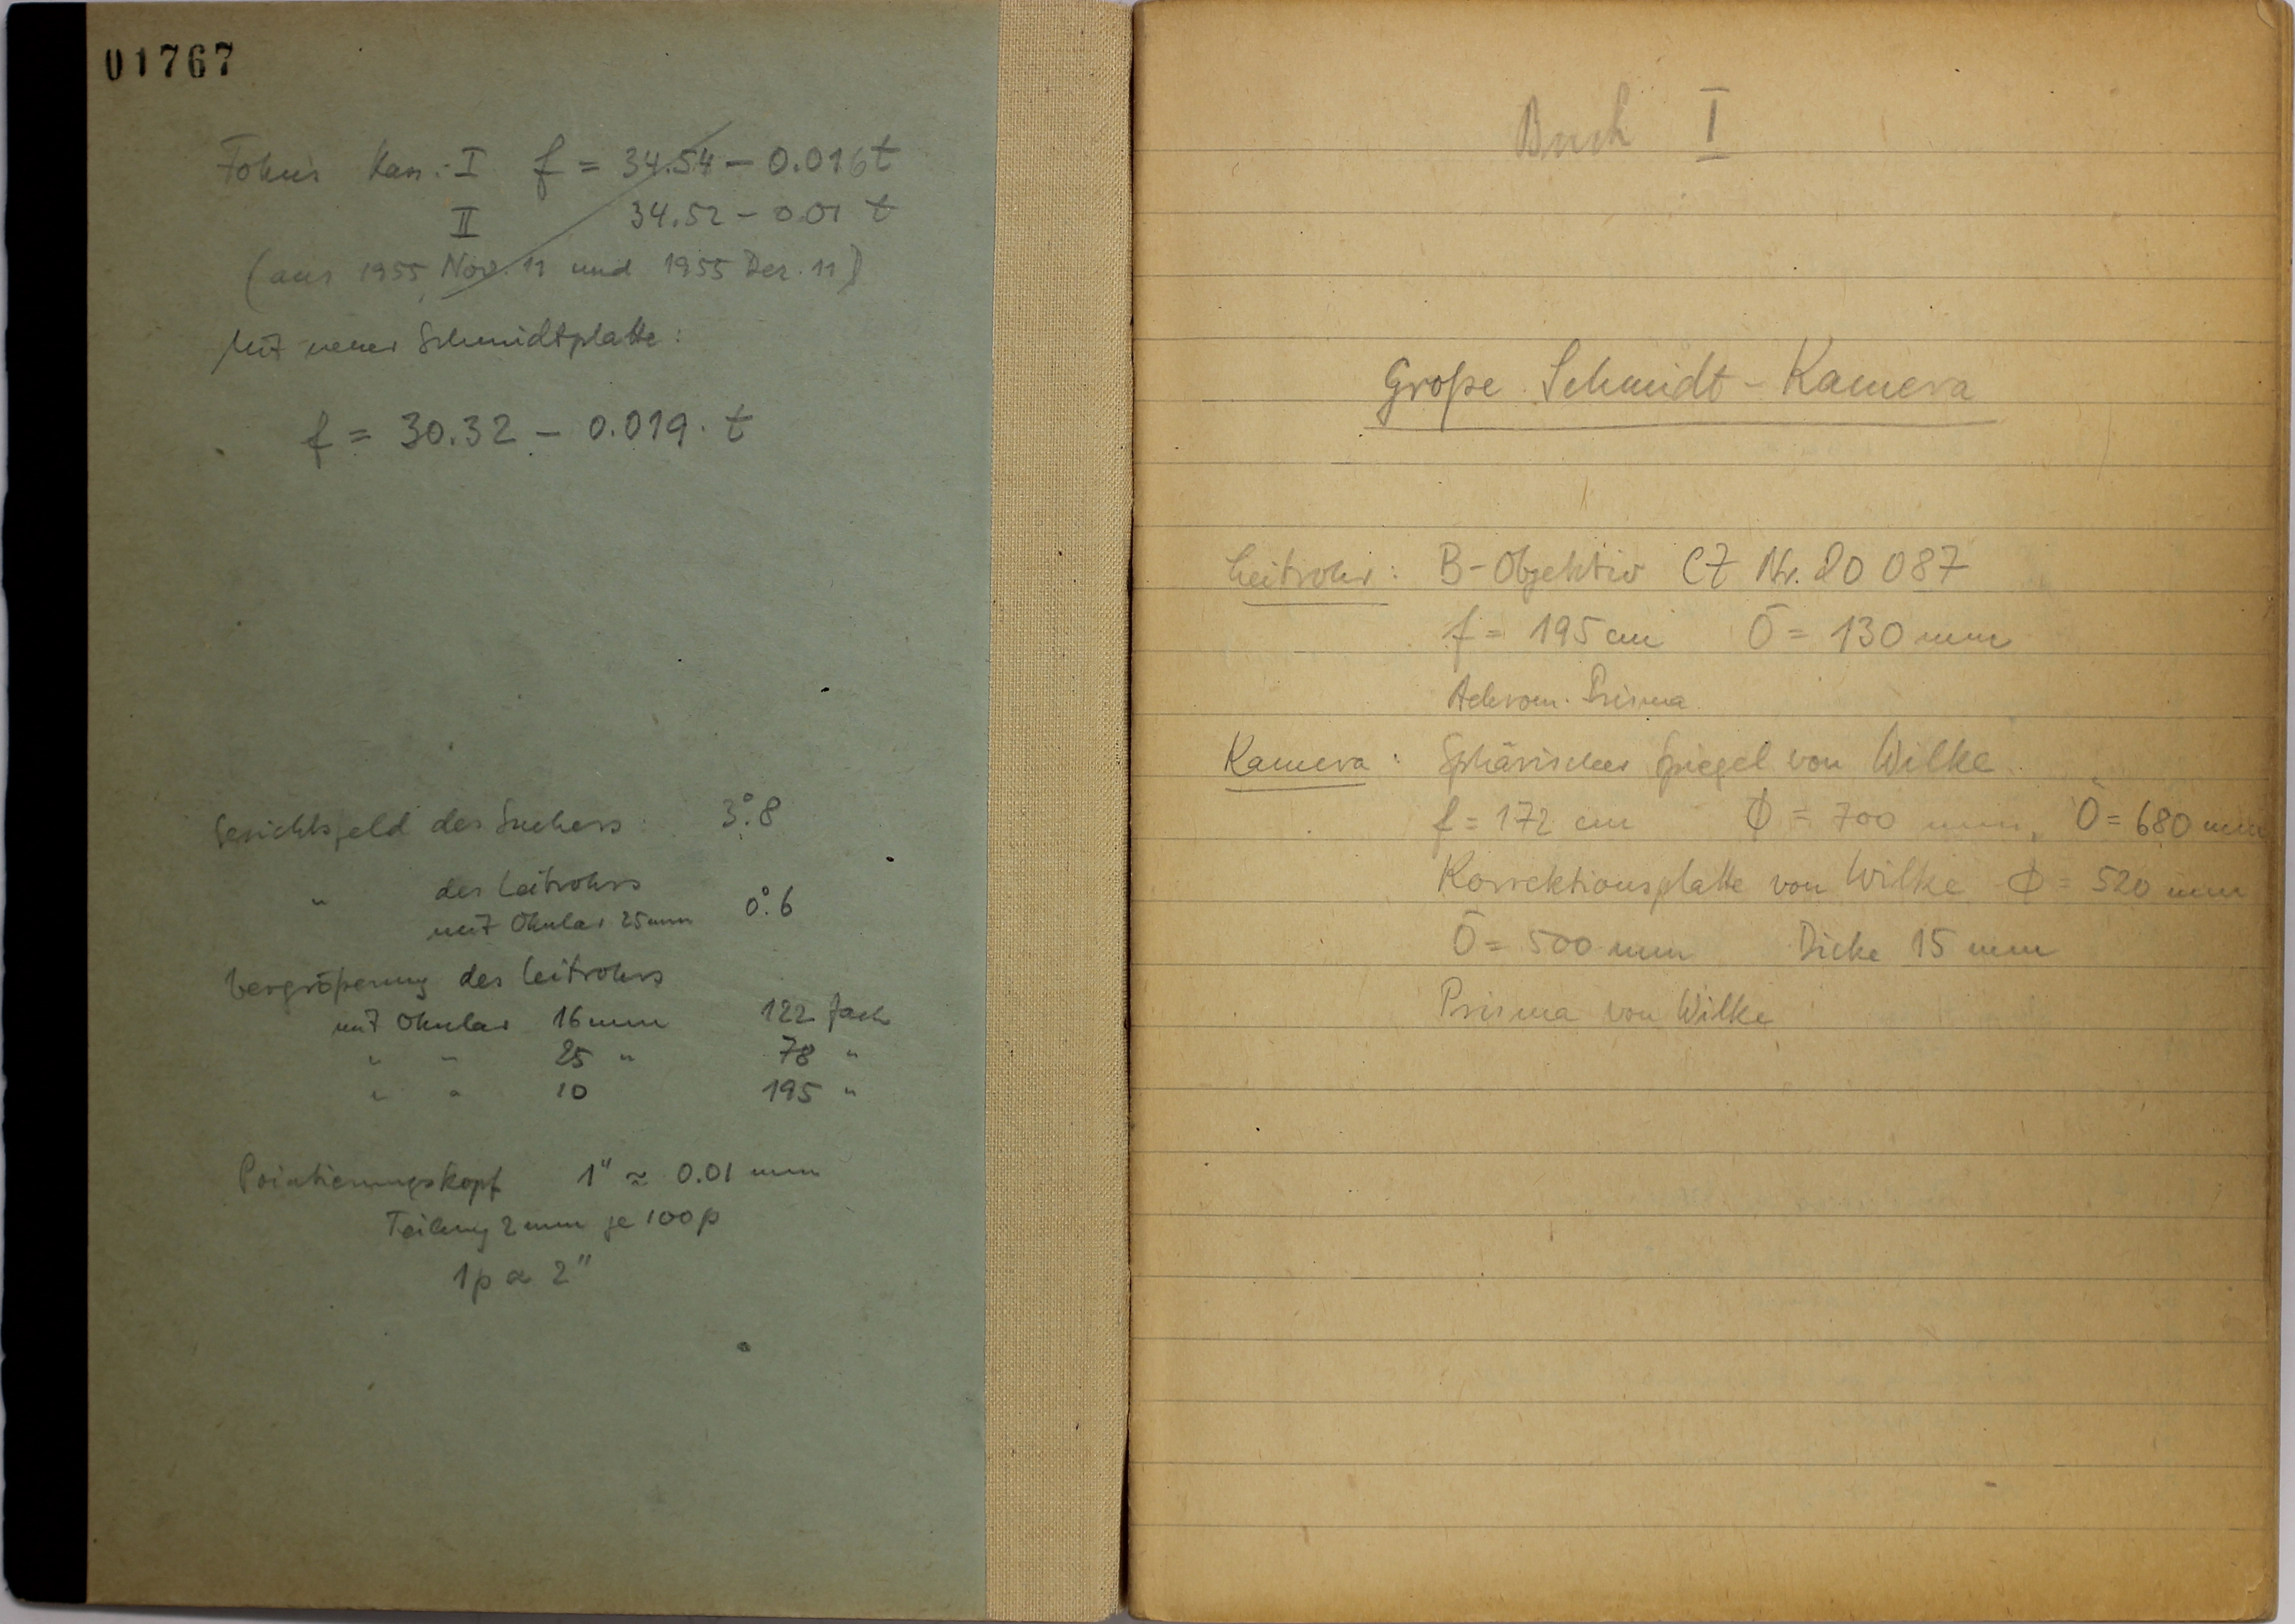 01767
Fokus Kass. I f = 34.54 - 0.016 t
II 34.52 - 0.01 t
(aus 1955 Nov. 11 und 1955 Dez. 11)
Mit neuer Schmidtplatte:
f = 30.32 - 0.019 · t
Gesichtsfeld des Suchers 3°.8
" des Leitrohrs
mit Okular 25mm 0°.6
Vergrößerung des Leitrohrs
mit Okular 16mm 122 fach
" " 25 " 78 "
" " 10 195 "
Pointierungskopf 1" ≈ 0.01 mm
Teilung 2 mm je 100 p
1p ≈ 2"
Buch I
Große Schmidt-Kamera
Leitrohr: B-Objektiv CZ Nr. 20 087
f = 195 cm Ö = 130 mm
Achrom. Prisma
Kamera: Sphärischer Spiegel von Wilke
f = 172 cm Φ = 700 mm, Ö = 680 mm
Korrektionsplatte von Wilke Φ = 520 mm
Ö = 500 mm Dicke 15 mm
Prisma von Wilke